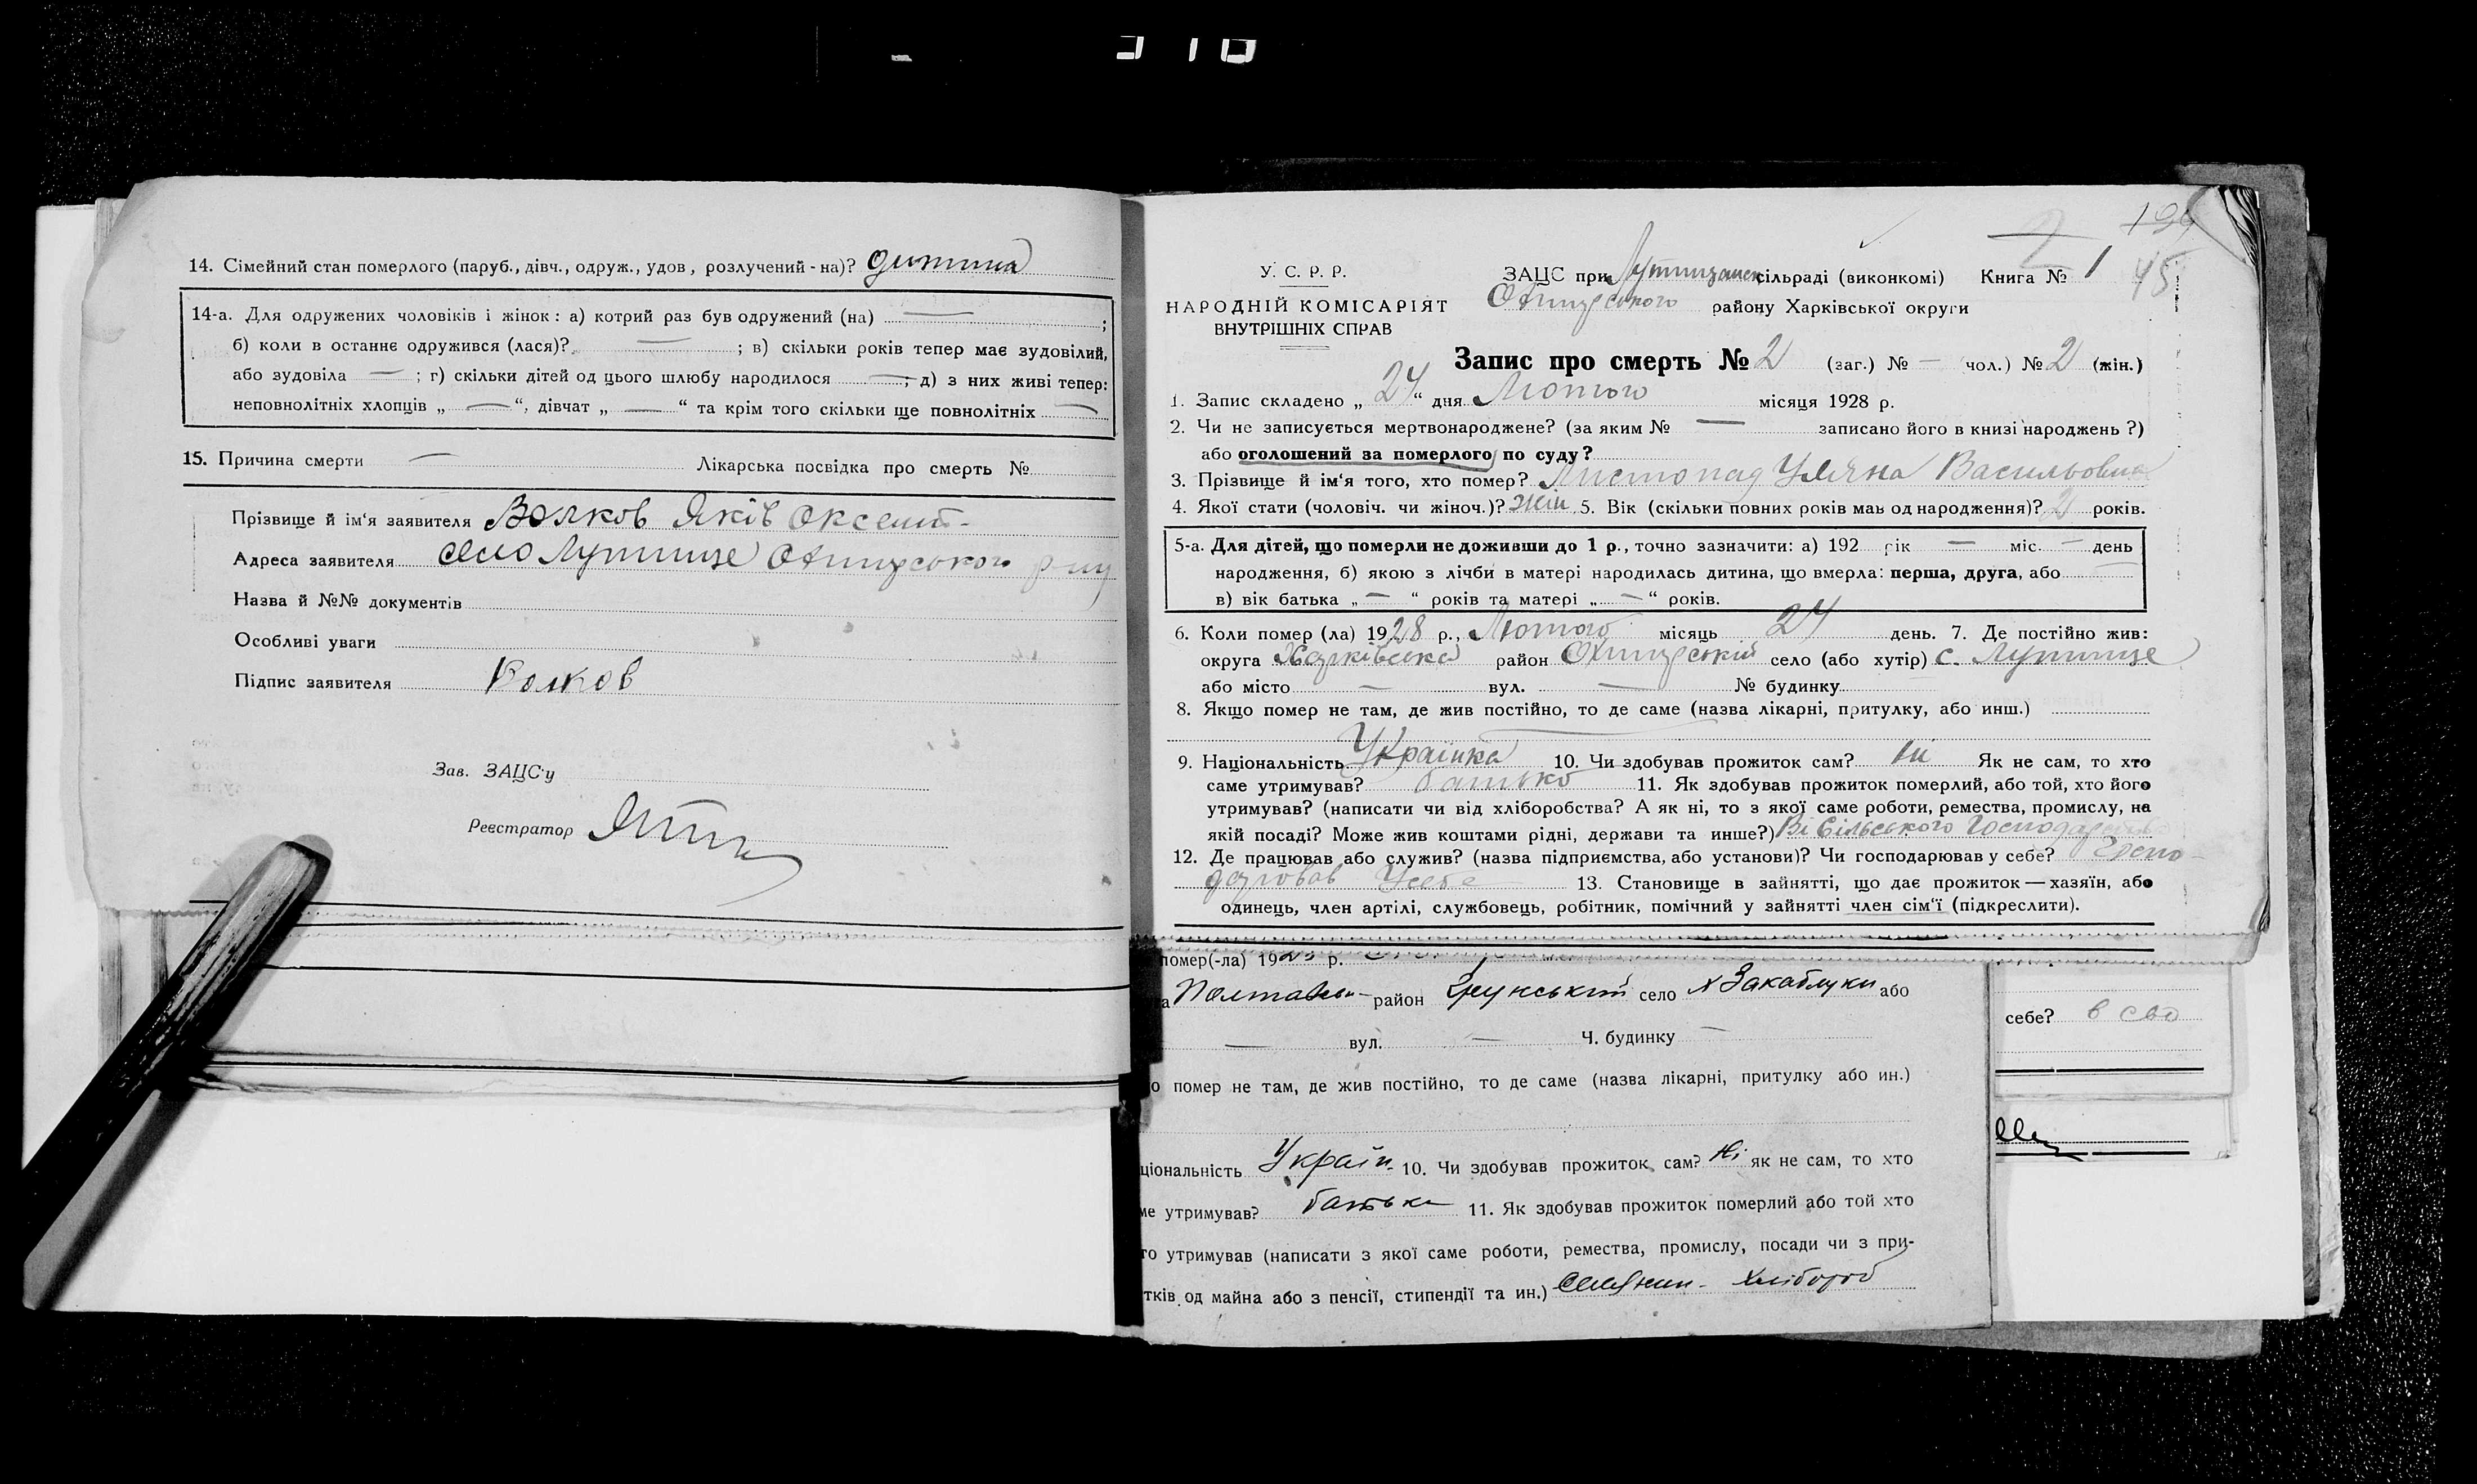 14. Сімейний стан померлого (паруб., дівч., одруж., удов, розлучений-на)? дитина
14-а. Для одружених чоловіків і жінок: а) котрий раз був одружений (на) — ;
б) коли в останнє одружився (лася)? — ; в) скільки років тепер має зудовілий,
або зудовіла — ; г) скільки дітей од цього шлюбу народилося — ; д) з них живі тепер:
неповнолітніх хлопців „ — “, дівчат „ — “ та крім того скільки ще повнолітніх —
15. Причина смерти — Лікарська посвідка про смерть №
Прізвище й ім‘я заявителя Волков Яків Оксент-
Адреса заявителя село Лутище Охтирського р-ну
Назва й №№ документів
Особливі уваги
Підпис заявителя Волков
Зав. ЗАЦС‘у
Реєстратор
199
45
У. С. Р. Р.
НАРОДНІЙ КОМІСАРІЯТ
ВНУТРІШНІХ СПРАВ
ЗАЦС при Лутищанск сільраді (виконкомі) Книга № 1
Охтирського району Харківської округи
Запис про смерть № 2 (заг.) № — чол.) № 2 (жін.)
1. Запис складено „ 24 “ дня Лютого місяця 1928 р.
2. Чи не записується мертвонароджене? (за яким № — записано його в книзі народжень ?)
або оголошений за померлого по суду?
3. Прізвище й ім‘я того, хто помер? Листопад Уляна Васильовна
4. Якої стати (чоловіч. чи жіноч.)? жін 5. Вік (скільки повних років мав од народження)? 2 років.
5-а. Для дітей, що померли не доживши до 1 р., точно зазначити: а) 192 рік — міс. — день
народження, б) якою з лічби в матері народилась дитина, що вмерла: перша, друга, або
в) вік батька „ — “ років та матері „ — “ років.
6. Коли помер (ла) 1928 р., Лютого місяць 24 день. 7. Де постійно жив:
округа Харківська район Охтирський село (або хутір) с. Лутище
або місто — вул. — № будинку
8. Якщо помер не там, де жив постійно, то де саме (назва лікарні, притулку, або инш.)
9. Національність Українка 10. Чи здобував прожиток сам? ні Як не сам, то хто
саме утримував? батько 11. Як здобував прожиток померлий, або той, хто його
утримував? (написати чи від хліборобства? А як ні, то з якої саме роботи, ремества, промислу, на
якій посаді? Може жив коштами рідні, держави та инше?) Ві Сільського Господарства
12. Де працював або служив? (назва підприємства, або установи)? Чи господарював у себе? Госпо-
дарював Усебе 13. Становище в зайнятті, що дає прожиток — хазяїн, або
одинець, член артілі, службовець, робітник, помічний у зайнятті член сім‘ї (підкреслити).
помер(-ла) 19 р.
а Полтавськ- район Грунський село х Закаблуки або
— вул. — Ч. будинку —
о помер не там, де жив постійно, то де саме (назва лікарні, притулку або ин.)
ціональність Україн. 10. Чи здобував прожиток сам? Ні як не сам, то хто
ме утримував? батько 11. Як здобував прожиток померлий або той хто
го утримував (написати з якої саме роботи, ремества, промислу, посади чи з при-
тків од майна або з пенсії, стипендії та ин.) Селянин- хлібороб
себе? в сво